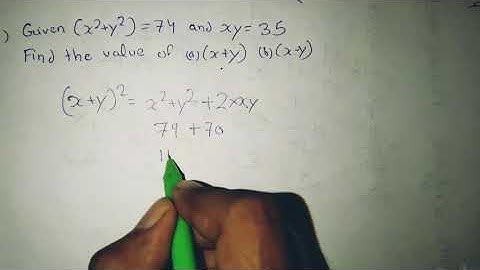 ) Given (x²+y²)=74 and xy=35
Find the value of (a)(x+y) (b)(x-y)
(x+y)² = x²+y²+2×xy
74 +70
1